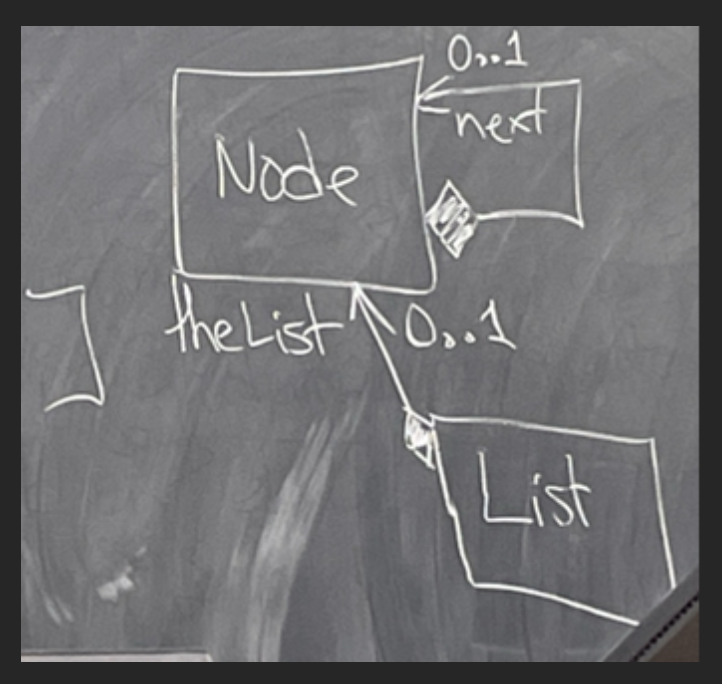 0..1
next
Node
theList
0..1
List